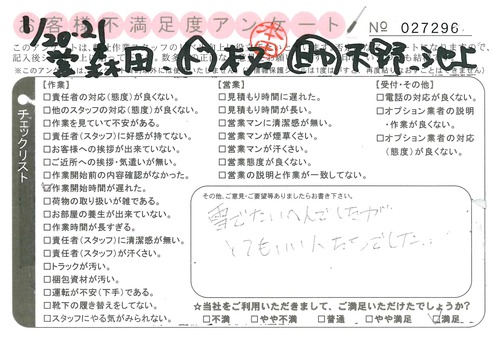 お客様不満足度アンケート
No 027296
1/2021
営 森田
本
【作業】
□責任者の対応(態度)が良くない。
□他のスタッフの対応(態度)が良くない。
□作業を見ていて不安がある。
□責任者(スタッフ)に好感が持てない。
□お客様への挨拶が出来ていない。
□ご近所への挨拶・気遣いが無い。
□作業開始前の内容確認がなかった。
□作業開始時間が遅れた。
□荷物の取り扱いが雑である。
□お部屋の養生が出来ていない。
□作業時間が長すぎる。
□責任者(スタッフ)に清潔感が無い。
□責任者(スタッフ)が汗さい。
□トラックが汚い。
□梱包資材が汚い。
□運転が不安(下手)である。
□靴下の履き替えをしてない。
□スタッフにやる気がみられない。
【営業】
□見積もり時間に遅れた。
□見積もり時間が長い。
□営業マンに清潔感が無い。
□営業マンが煙草くさい。
□営業マンが汗さい。
□営業態度が良くない。
□営業の説明と作業が一致してない。
【受付・その他】
□電話の対応が良くない。
□オプション業者の説明
・作業が良くない。
□オプション業者の対応
(態度)が良くない。
チェックリスト
その他、ご意見・ご要望等ありましたらお書き下さい。
雪でたいへんでしたが
とてもいい人たちでした…
☆当社をご利用いただきまして、ご満足いただけたでしょうか?
□不満 □やや不満 □普通 □やや満足 □満足